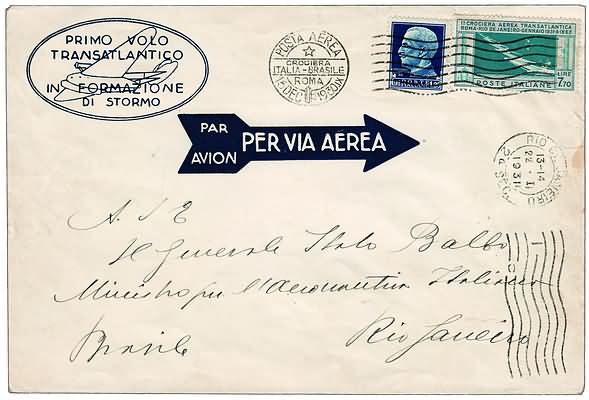 PRIMO VOLO
TRANSATLANTICO
IN FORMAZIONE
DI STORMO
POSTA AEREA
CROCIERA
ITALIA-BRASILE
ROMA
15 DEC 1930 IX
II CROCIERA AEREA TRANSATLANTICA
ROMA-RIO DE JANEIRO-GENNAIO 1931
POSTE ITALIANE
LIRE
7,70
PAR
AVION
PER VIA AEREA
RIO DE JANEIRO
13-14
1931
A. S E
Il Generale Italo Balbo
Ministro per l'Aeronautica Italiana
Brasile
Rio Janeiro